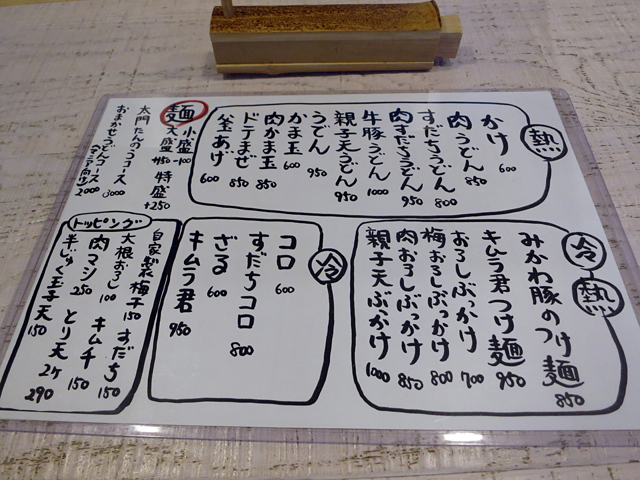 熱
かけ 600
肉うどん 850
すだちうどん 800
肉すだちうどん 950
牛豚うどん 1000
親子天うどん 950
うどん 950
かま玉 600
肉かま玉 850
ドテまぜ 850
釜あげ 600
麺
小盛 -100
大盛 +150
特盛 +250
太門たんのうコース 3000
おまかせうどんコース 2000
(マニア向け)
冷 熱
みかわ豚のつけ麺 850
キムラ君つけ麺 950
おろしぶっかけ 700
梅おろしぶっかけ 800
肉おろしぶっかけ 850
親子天ぶっかけ 1000
冷
コロ 600
すだちコロ 800
ざる 600
キムラ君 950
トッピング
自家製梅干 150
すだち 150
大根おろし 100
キムチ 150
肉マシ 250
とり天2ケ 290
半じゅく玉子天 150